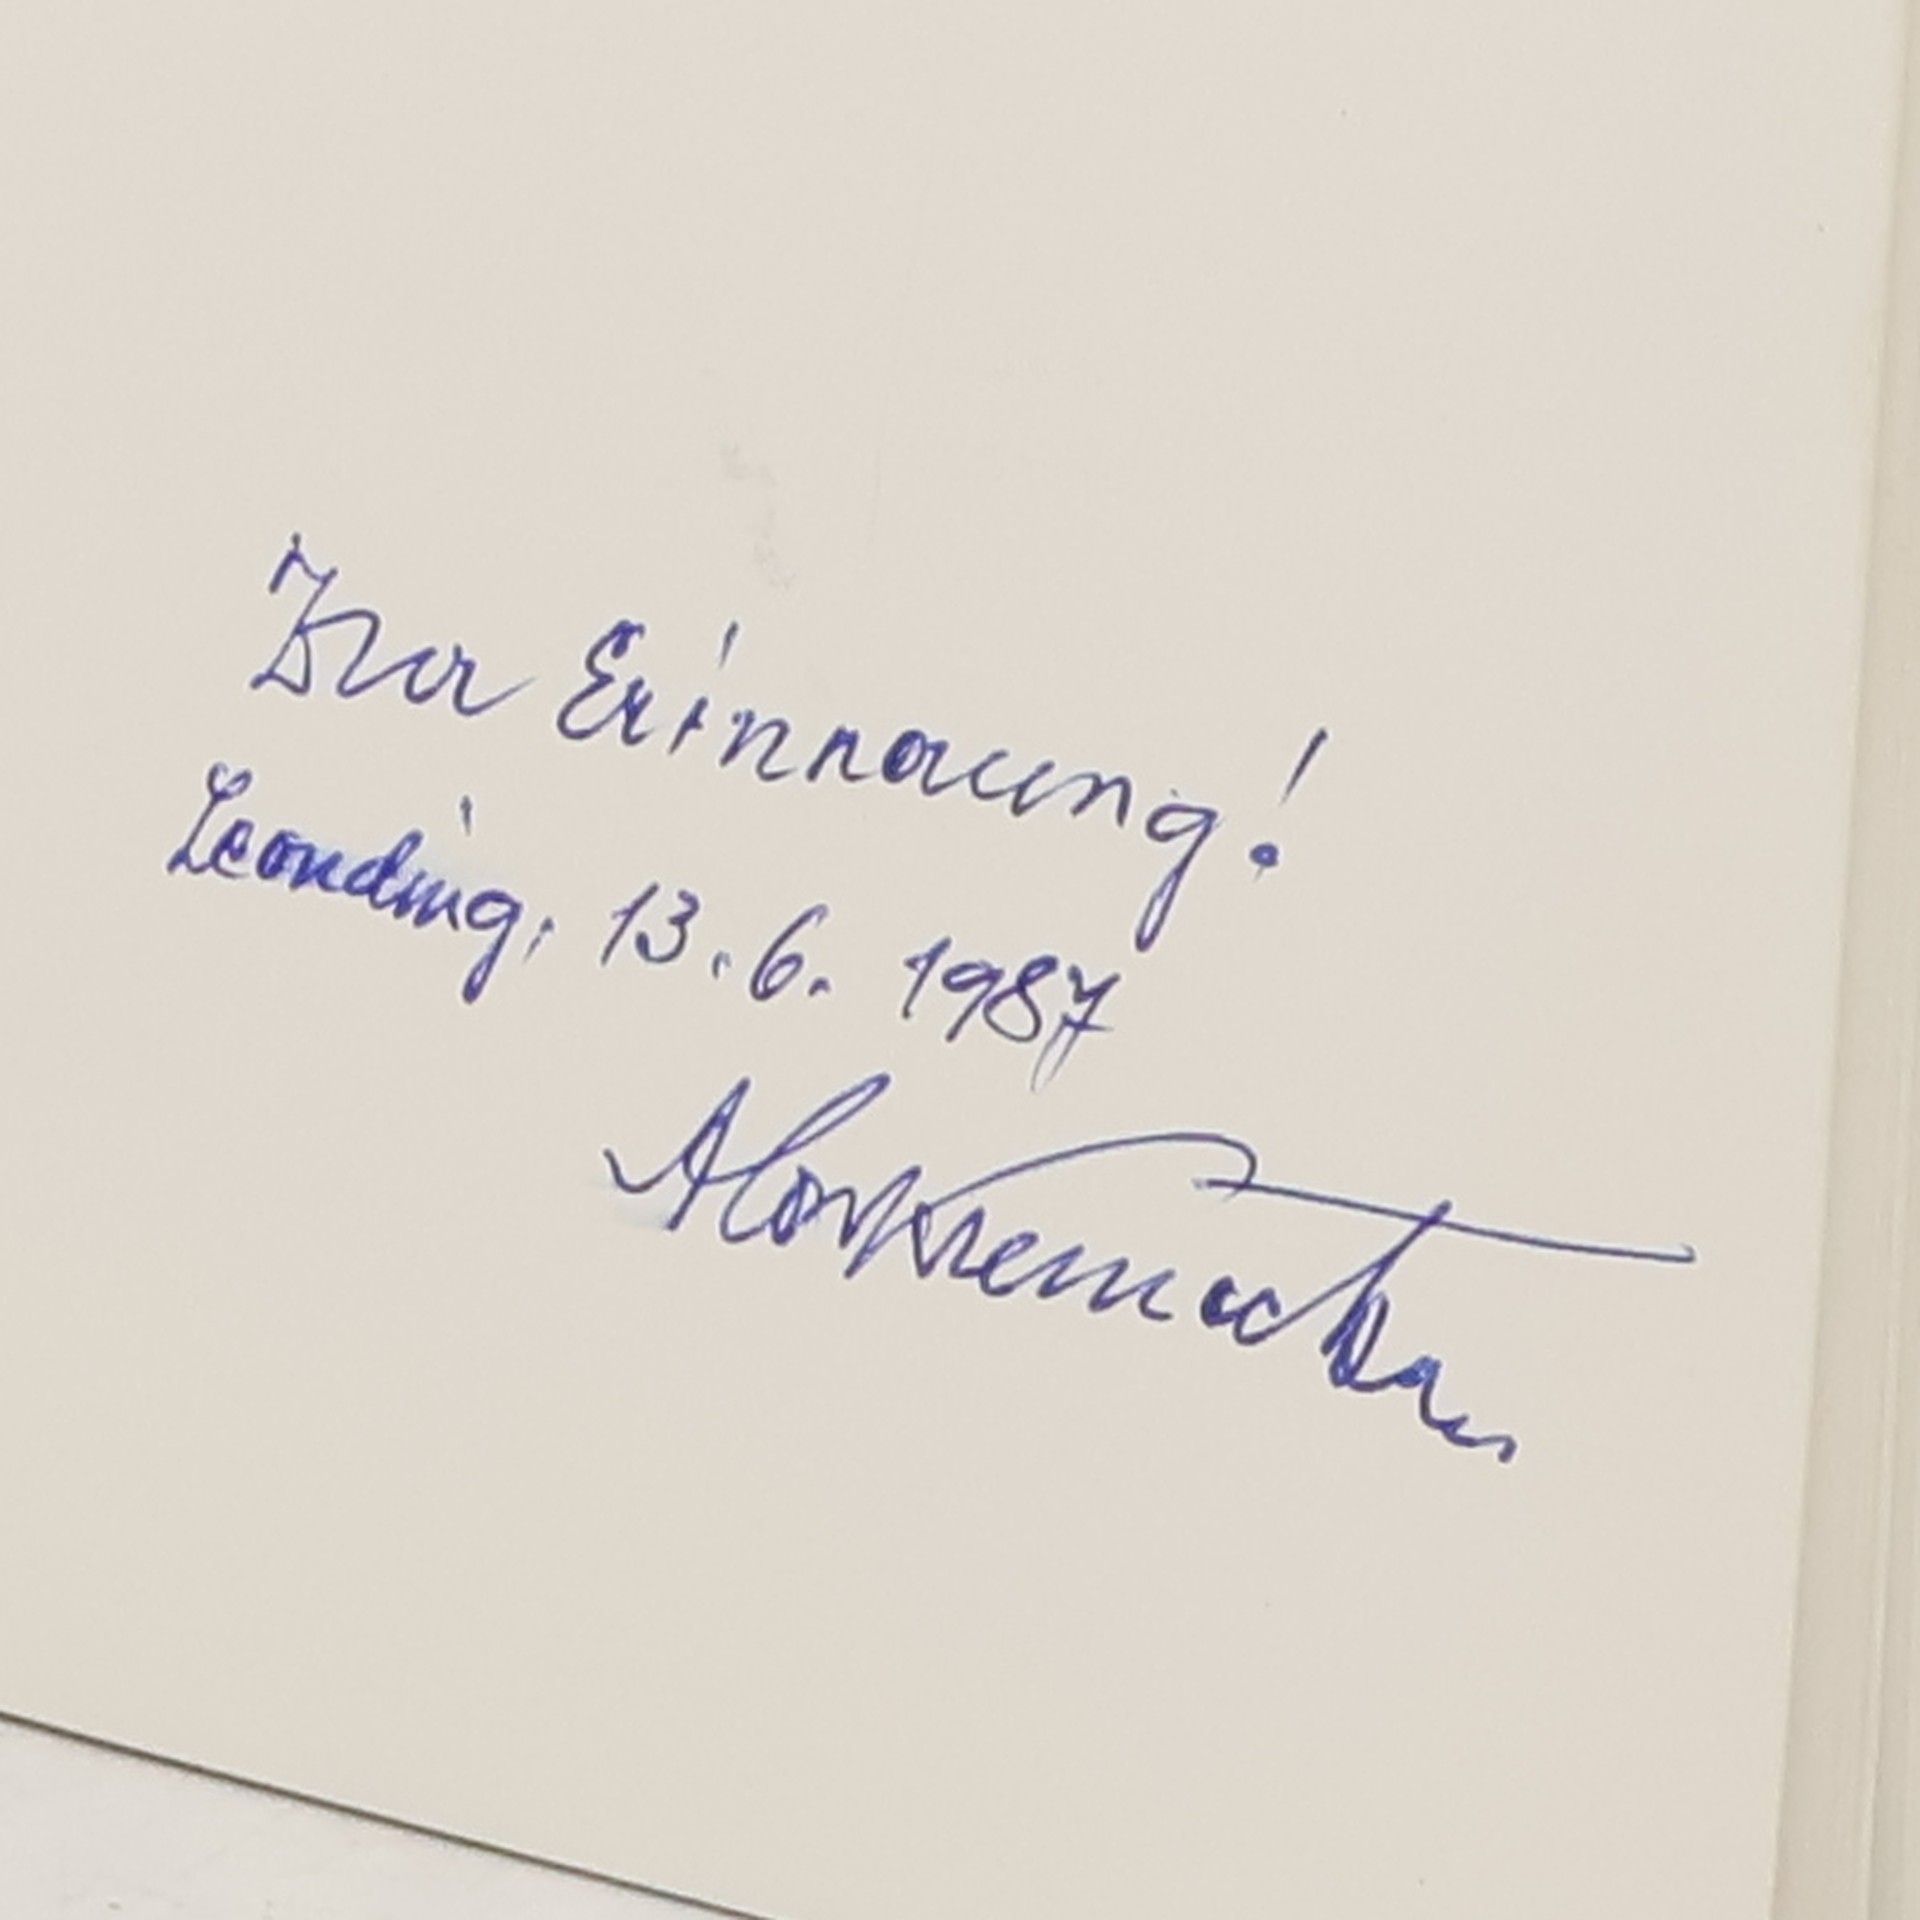 Zur Erinnerung!
Leonding, 13.6. 1987